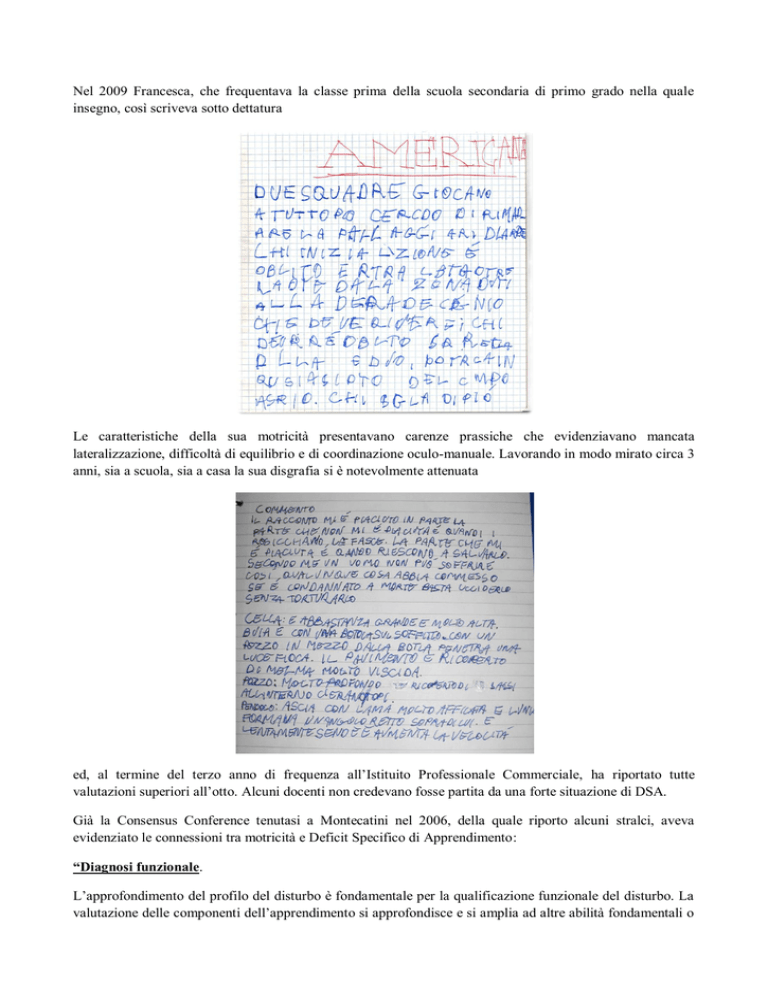 Nel 2009 Francesca, che frequentava la classe prima della scuola secondaria di primo grado nella quale
insegno, così scriveva sotto dettatura
AMERICANA
DUE SQUADRE GIOCANO
A TUTTOPO CERCDO DI RIMAR
ARE LA PALL AGGI ARI
CHI INIZIA
OBLITO E RTRA
DALA ZENA DUTI
ALLA
CHE DEVE
OBLTO
POTRCAIN
DEL CMPO
CHI SGLA DIPIO
Le caratteristiche della sua motricità presentavano carenze prassiche che evidenziavano mancata
lateralizzazione, difficoltà di equilibrio e di coordinazione oculo-manuale. Lavorando in modo mirato circa 3
anni, sia a scuola, sia a casa la sua disgrafia si è notevolmente attenuata
COMMENTO
IL RACCONTO MI È PIACIUTO IN PARTE LA
PARTE CHE NON MI È PIACIUTA È QUANDI I
LE FASCE. LA PARTE CHE MI
È PIACIUTA È QANDO RIESCONO A SALVARLO.
SECONDO ME UN UOMO NON PUÒ SOFFRIRE
COSÌ, QUALUNQUE COSA ABBIA COMMESSO
SE È CONDANNATO A MORTE BASTA UCCIDERLO
SENZA TORTURARLO
CELLA: È ABBASTANZA GRANDE E MOLTO ALTA.
BUIA E CON UNA BOTOLA SUL SOFFITTO. CON UN
POZZO IN MEZZO DALLA BOTLA PENETRA UNA
LUCE FIOCA. IL PAVIMENTO È RICOPERTO
DI MELMA MOLTO VISCIDA.
POZZO: MOLTO PROFONDO RICOPERTO DI SASSI
ALL'INTERNO C'ERANO TOPI.
PENDOLO: ASCIA CON LAMA MOLTO AFFILATA E LUNG
FORMANA UN ANGOLO RETTO SOPRA DI LUI. E
LENTAMENTE E AUMENTA LA VELOCITÀ
ed, al termine del terzo anno di frequenza all'Istituito Professionale Commerciale, ha riportato tutte
valutazioni superiori all'otto. Alcuni docenti non credevano fosse partita da una forte situazione di DSA.
Già la Consensus Conference tenutasi a Montecatini nel 2006, della quale riporto alcuni stralci, aveva
evidenziato le connessioni tra motricità e Deficit Specifico di Apprendimento:
“Diagnosi funzionale.
L'approfondimento del profilo del disturbo è fondamentale per la qualificazione funzionale del disturbo. La
valutazione delle componenti dell'apprendimento si approfondisce e si amplia ad altre abilità fondamentali o